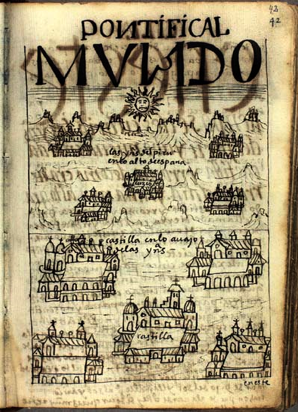 42
PONTIFICAL
MVNDO
las yn̄s del piru
enlo alto de españa
castilla enlo auajo
delas yn̄s
castilla
en este